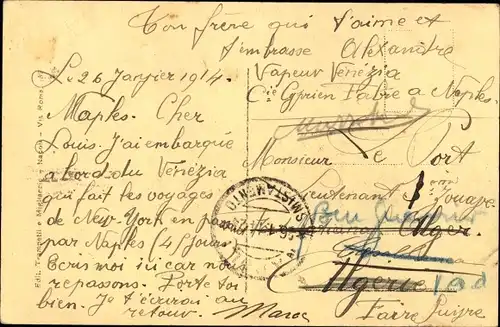 Ton frère qui t'aime et
t'embrasse Alexandre
Vapeur Venézia
Cie Cyprien Fabre a Naples
Le 26 Janvier 1914.
Naples. Cher
Louis. J'ai embarqué
a bord du Venézia
qui fait les voyages
de New-York en passant
par Naples (45 jours)
Ecris moi ici car nous
repassons. Porte toi
bien. Je t'écrirai au
retour.
Monsieur Le Port
Lieutenant Zouave
Alger
Algérie
Maroc
Faire Suivre
SMISTAMENTO
Edit. Trampetti - Migliaccio - Napoli - Via Roma